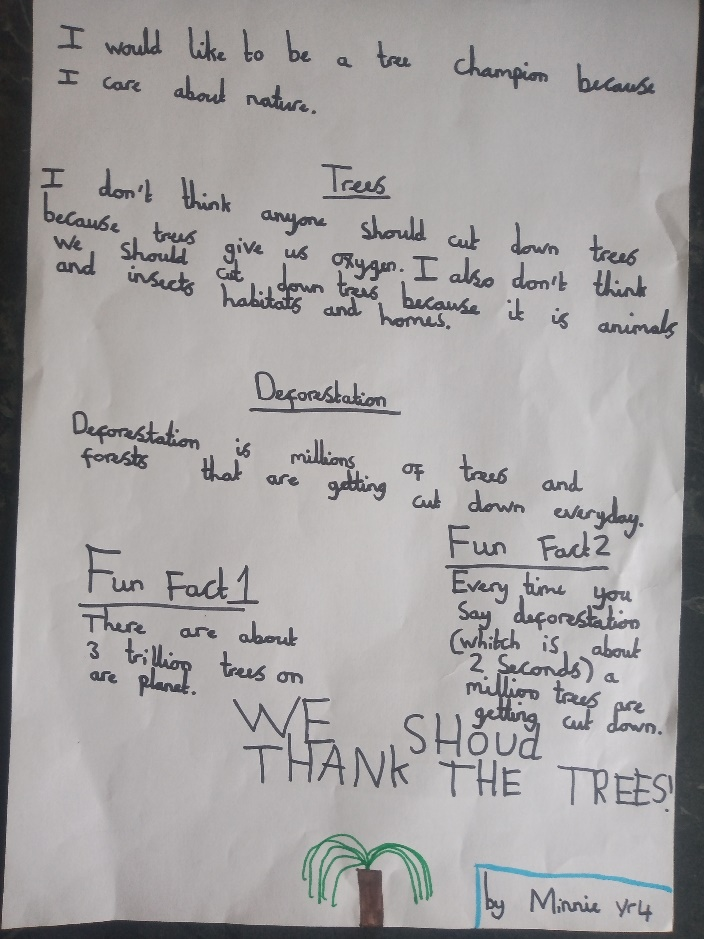 I would like to be a tree champion because
I care about nature.
Trees
I don't think anyone should cut down trees
because trees give us oxygen. I also don't think
we should cut down trees because it is animals
and insects habitats and homes.
Deforestation
Deforestation is millions of trees and
forests that are getting cut down everyday.
Fun Fact 1
There are about
3 trillion trees on
are planet.
Fun Fact 2
Every time you
say deforestation
(whitch is about
2 seconds) a
million trees are
getting cut down.
WE SHOUd
THANK THE TREES!
by Minnie yr4